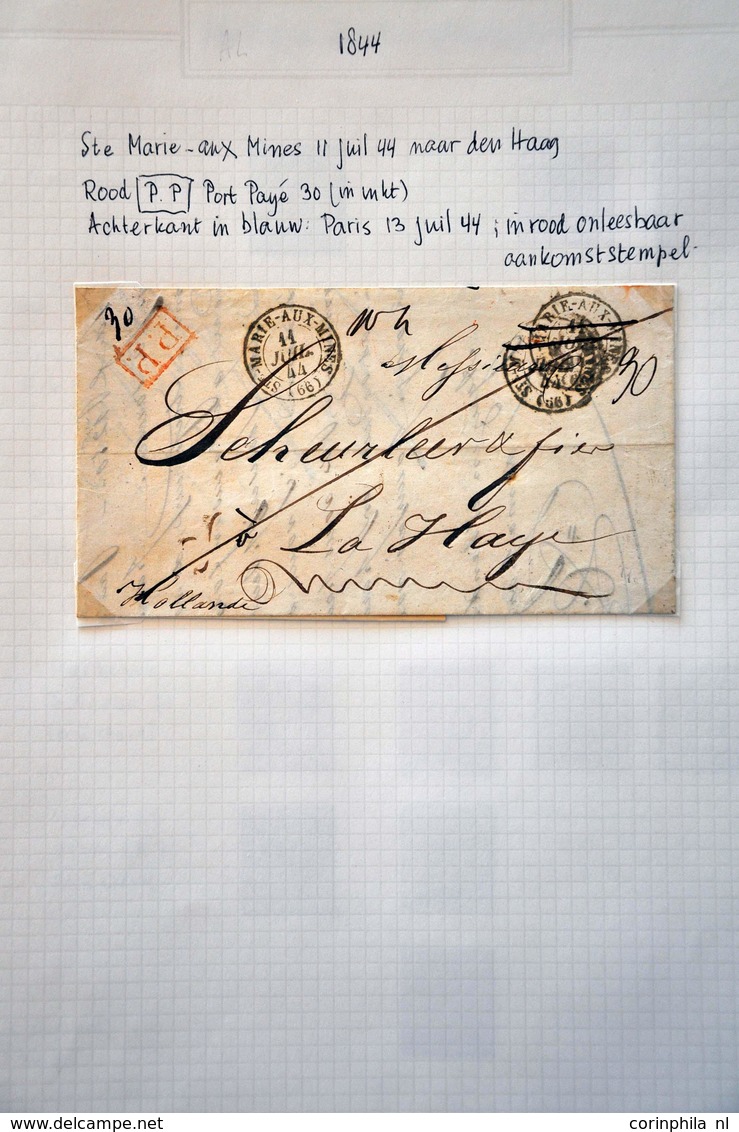 AL
1844
Ste Marie-aux Mines 11 juil 44 naar den Haag
Rood P.P Port Payé 30 (in inkt)
Achterkant in blauw: Paris 13 juil 44 ; in rood onleesbaar
aankomststempel.
30
P.P.
STE-MARIE-AUX-MINES
11
JUIL
44
(66)
MARIE-AUX-MINES
11
(66)
30
Scheurleer & fils
à La Haye
Hollande
www.delcampe.net
corinphila nl